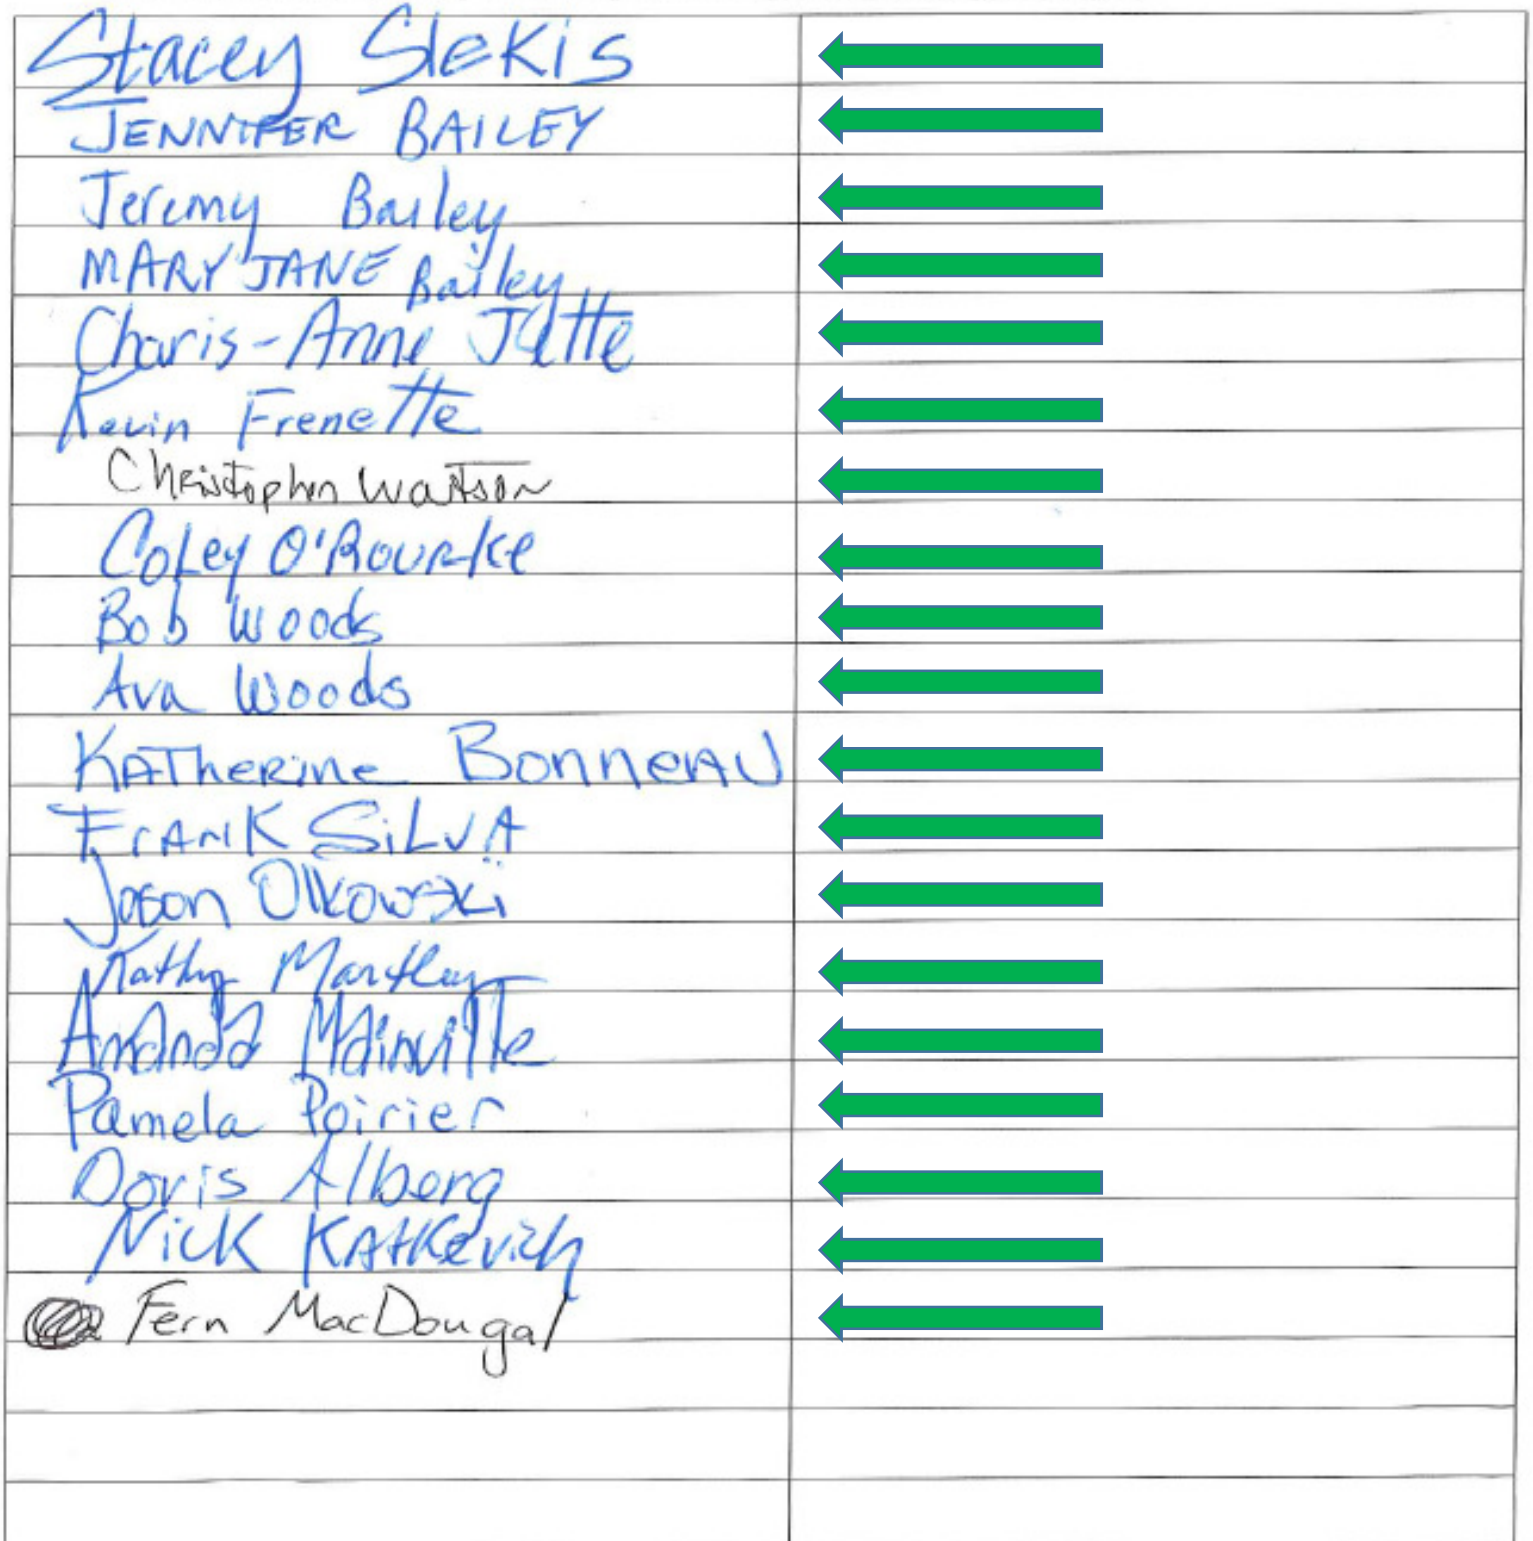 Stacey Slekis
JENNIFER BAILEY
Jeremy Bailey
MARY JANE Bailey
Charis-Anne Jette
Kevin Frenette
Christopher Watson
Coley O'Rourke
Bob Woods
Ava Woods
KATherine BonneAU
FrANK SiLVA
Jason Olkowski
Kathy Martley
Amanda Mainville
Pamela Poirier
Doris Alberg
Nick KAtKevich
Fern MacDougal